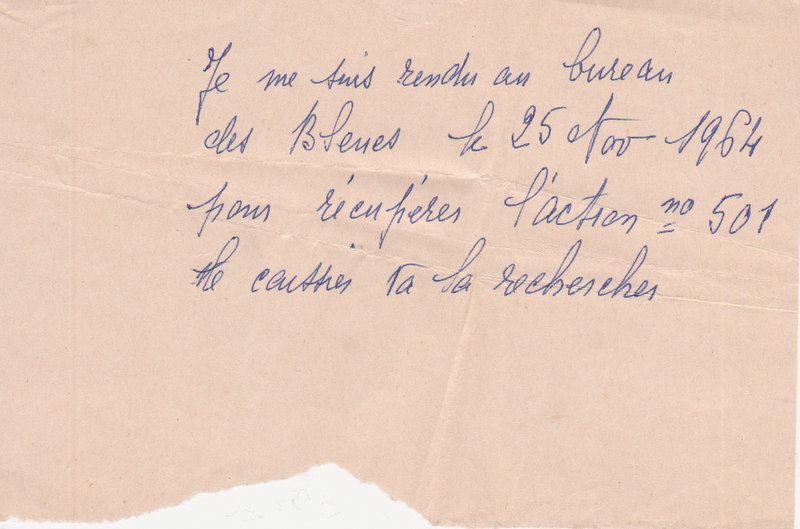 Je me suis rendu au bureau
des Bleues le 25 Nov 1964
pour récupérés l'action no 501
le caissier va la recherches